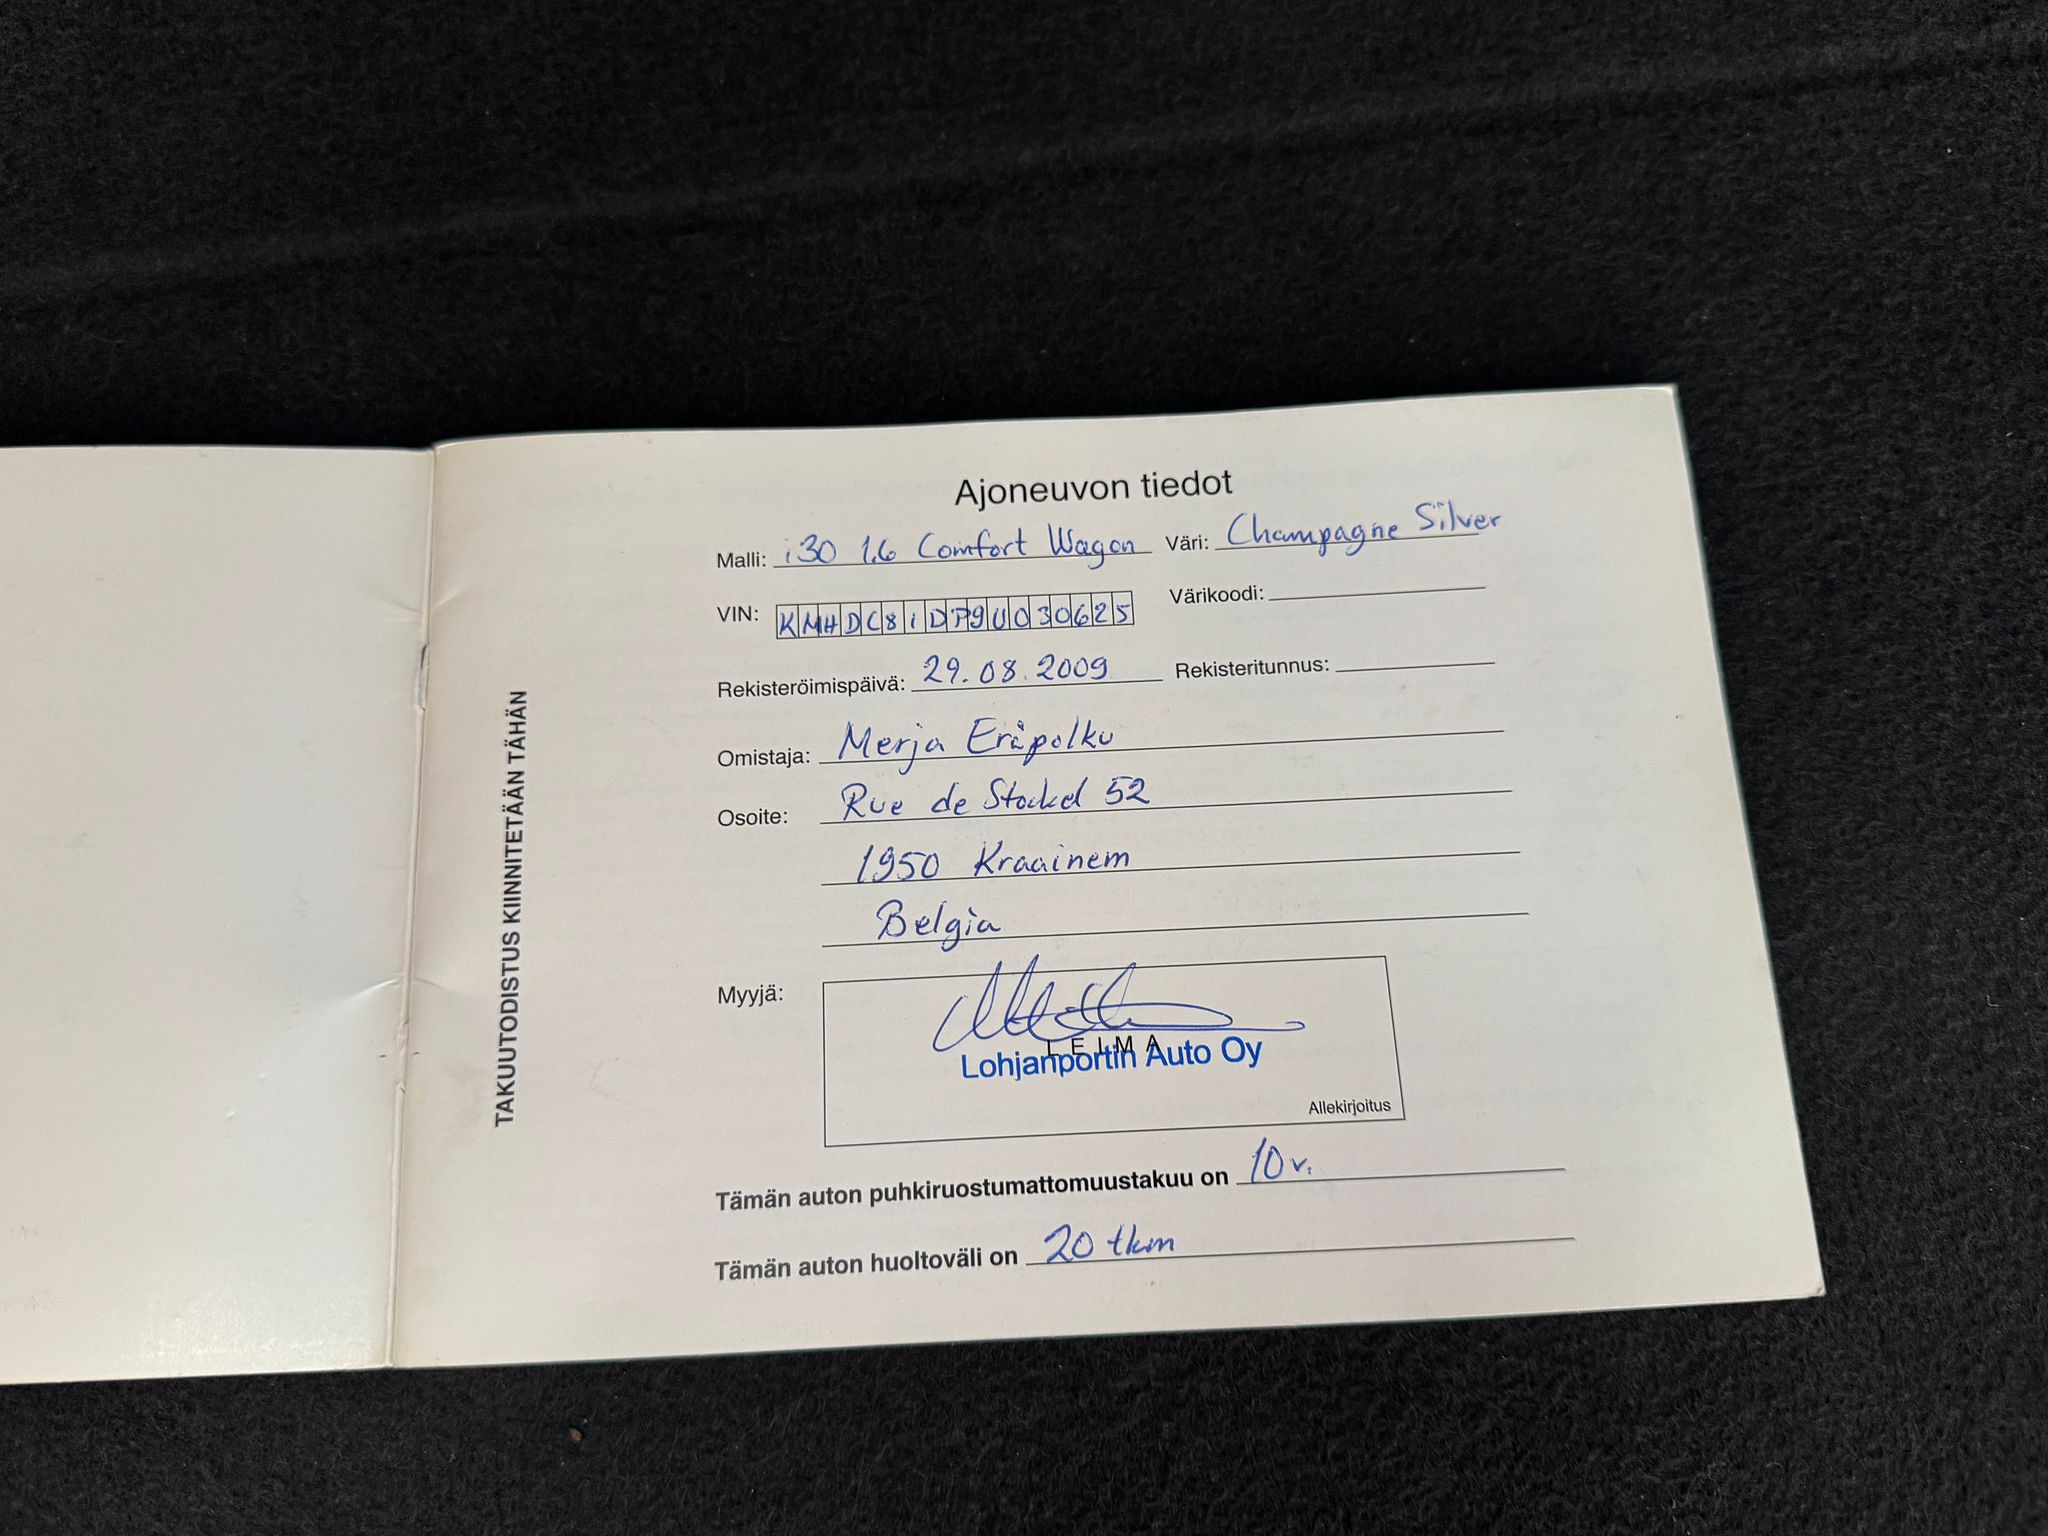 Ajoneuvon tiedot
Malli: i30 1.6 Comfort Wagon Väri: Champagne Silver
VIN: KMHDC81DP9U030625 Värikoodi:
Rekisteröimispäivä: 29.08.2009 Rekisteritunnus:
Omistaja: Merja Eräpolku
Osoite: Rue de Stockel 52
1950 Kraainem
Belgia
Myyjä:
LEIMA
Lohjanportin Auto Oy
Allekirjoitus
Tämän auton puhkiruostumattomuustakuu on 10 v.
Tämän auton huoltoväli on 20 tkm
TAKUUTODISTUS KIINNITETÄÄN TÄHÄN